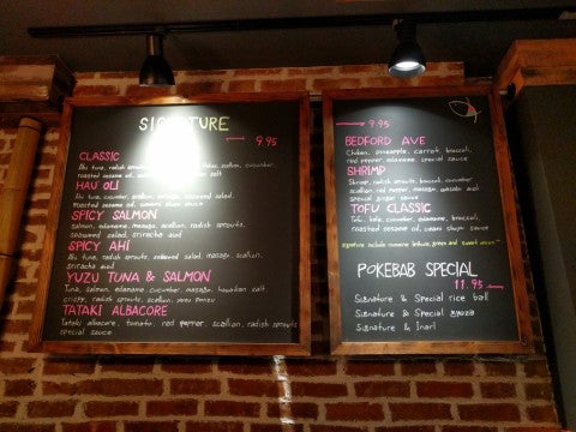 SIGNATURE
9.95
CLASSIC
Ahi tuna, radish scallion, cucumber,
roasted sesame oil, salt
HAU OLI
Ahi tuna, cucumber, scallion, seaweed salad,
roasted sesame oil, sauce
SPICY SALMON
Salmon, edamame, masago, scallion, radish sprouts,
seaweed salad, sriracha aioli
SPICY AHI
Ahi tuna, radish sprouts, seaweed salad, masago, scallion,
sriracha aioli
YUZU TUNA & SALMON
Tuna, salmon, edamame, cucumber, masago, hawaiian salt,
crispy, radish sprouts, scallion, yuzu ponzu
TATAKI ALBACORE
Tataki albacore, tomato, red pepper, scallion, radish sprouts
special sauce
9.95
BEDFORD AVE
Chicken, pineapple, carrot, broccoli,
red pepper, edamame, special sauce
SHRIMP
Shrimp, radish sprouts, broccoli, cucumber
scallion, red pepper, masago, wasabi and
special ginger sauce
TOFU CLASSIC
Tofu, kale, cucumber, edamame, broccoli,
roasted sesame oil, umami shoyu sauce
signature include romaine lettuce, green and sweet onion
POKEBAB SPECIAL
11.95
Signature & Special rice ball
Signature & Special gyoza
Signature & Inari